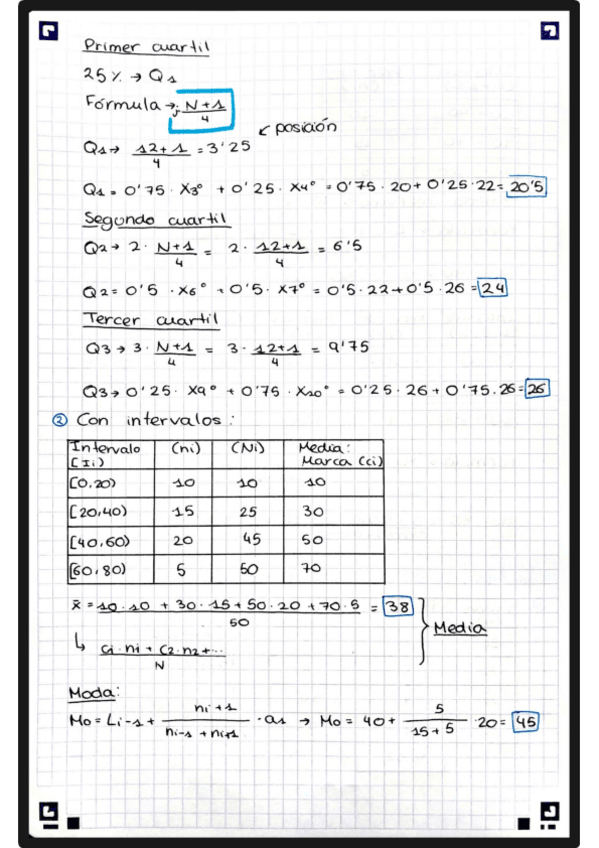 Primer cuartil
25% → Q1
Fórmula → j· N+1 / 4
Q1 → 12+1 / 4 = 3'25 ↙ posición
Q1 = 0'75 · X3º + 0'25 · X4º = 0'75 · 20 + 0'25 · 22 = 20'5
Segundo cuartil
Q2 → 2 · N+1 / 4 = 2 · 12+1 / 4 = 6'5
Q2 = 0'5 · X6º + 0'5 · X7º = 0'5 · 22 + 0'5 · 26 = 24
Tercer cuartil
Q3 → 3 · N+1 / 4 = 3 · 12+1 / 4 = 9'75
Q3 → 0'25 · X9º + 0'75 · X10º = 0'25 · 26 + 0'75 · 26 = 26
② Con intervalos:
Intervalo [Ii) (ni) (Ni) Media: Marca (ci)
[0,20) 10 10 10
[20,40) 15 25 30
[40,60) 20 45 50
[60,80) 5 50 70
x̄ = 10·10 + 30·15 + 50·20 + 70·5 / 50 = 38 } Media
↳ Ci·ni + C2·n2 + ... / N
Moda:
Mo = Li-1 + ni+1 / ni-1 + ni+1 · a1 → Mo = 40 + 5 / 15+5 · 20 = 45